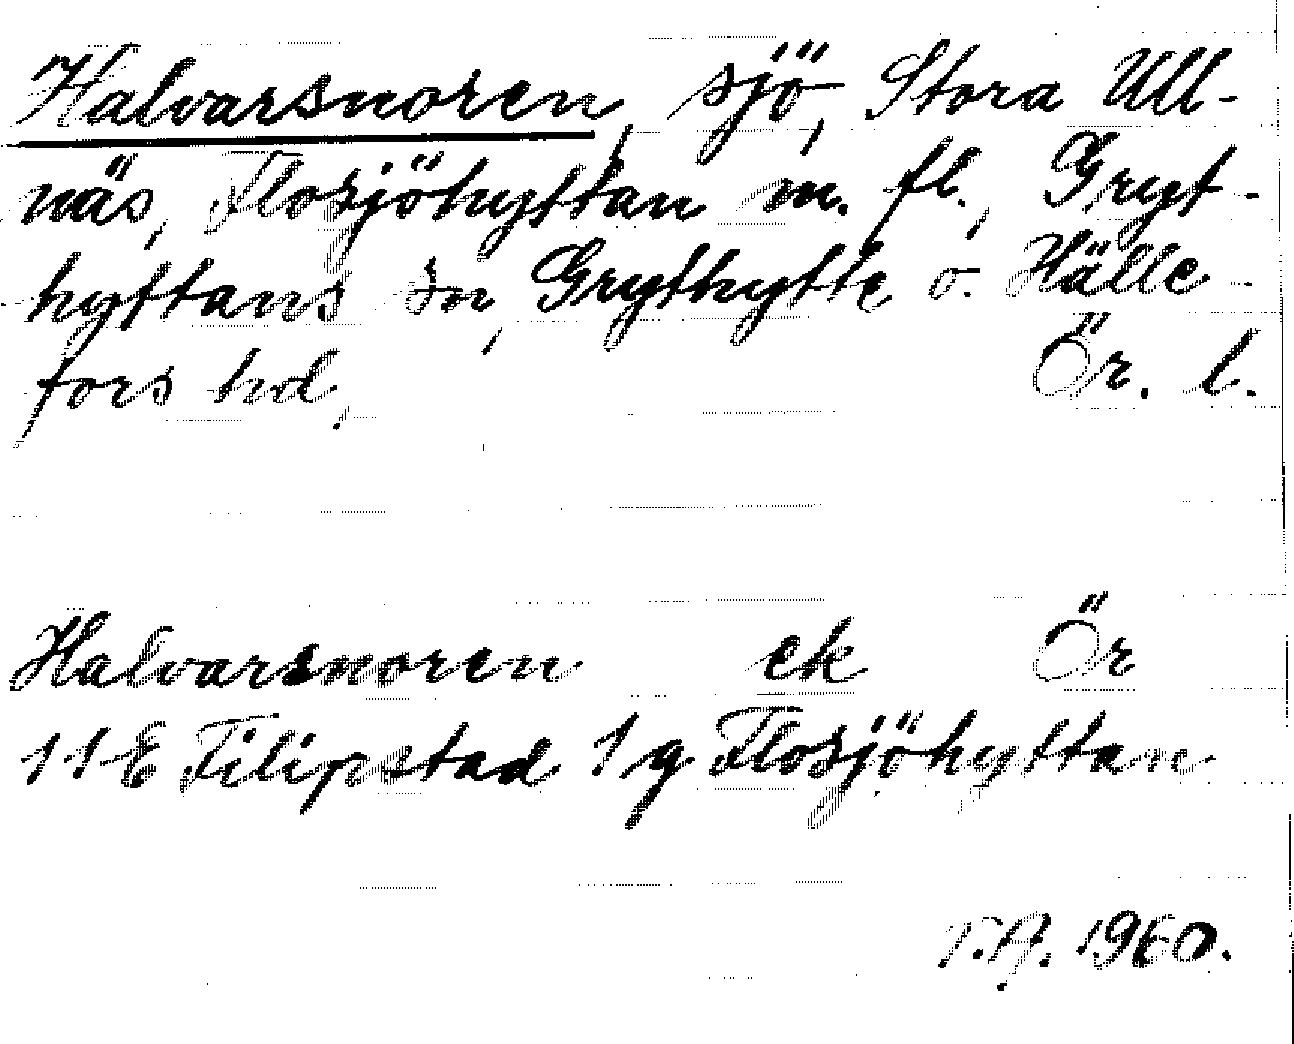 Halvarsnoren, sjö, Stora Ull-
näs, Flosjöhyttan m. fl., Gryt-
hyttans sn, Grythytte o. Hälle-
fors hd, Ör. l.
Halvarsnoren ek Ör
11E Filipstad 1g Flosjöhyttan
T.A. 1960.